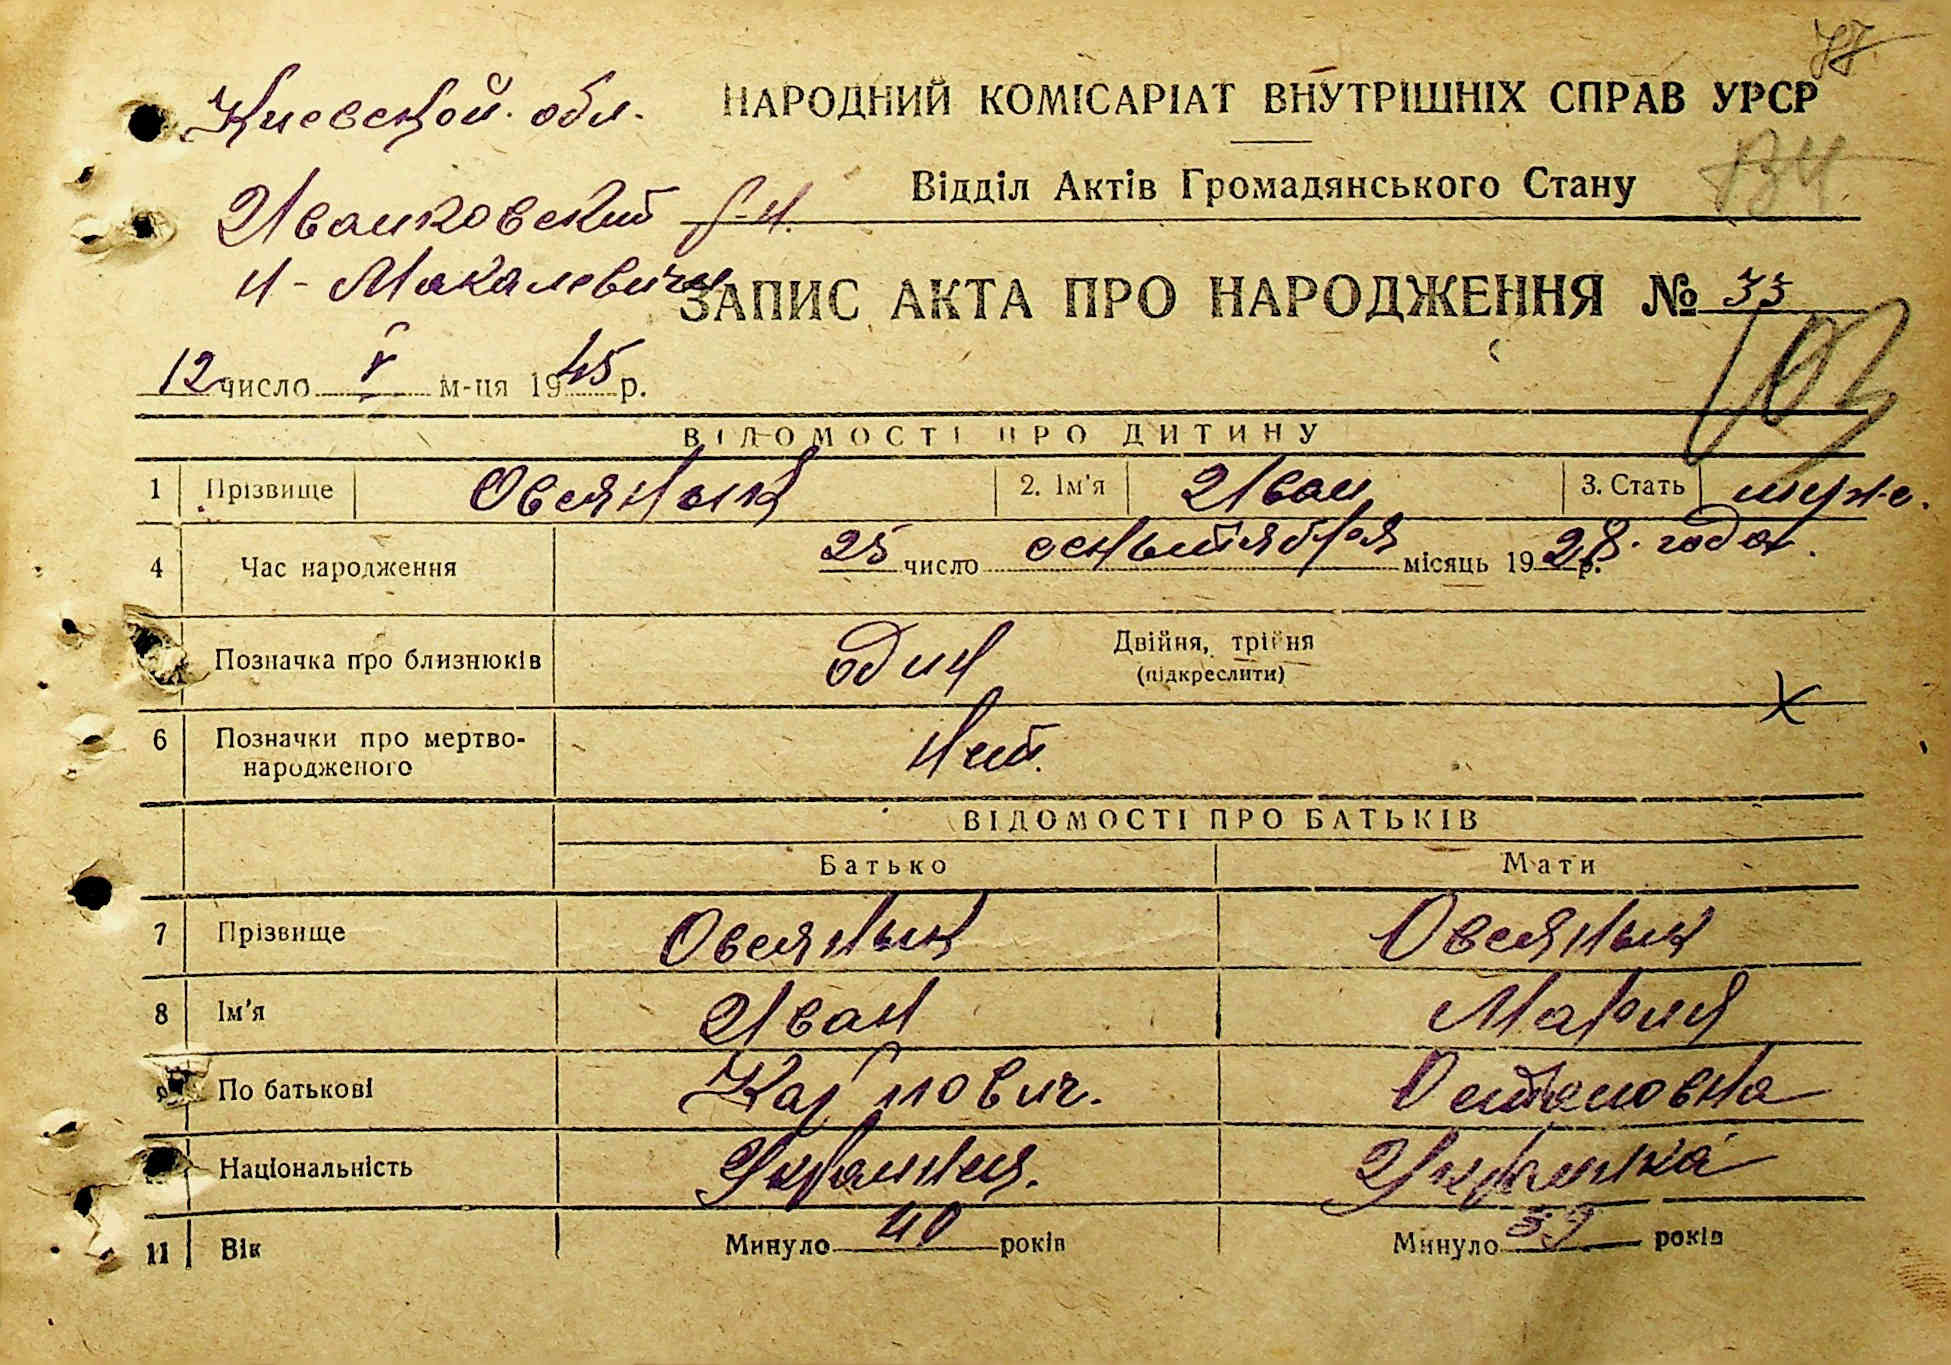 Киевской обл. НАРОДНИЙ КОМІСАРІАТ ВНУТРІШНІХ СПРАВ УРСР
Відділ Актів Громадянського Стану
Иванковский р-н.
Н-Макалевичи
ЗАПИС АКТА ПРО НАРОДЖЕННЯ № 33
12 число V м-ця 1945 р.
ВІДОМОСТІ ПРО ДИТИНУ
1 Прізвище Овсяный 2. Ім'я Иван 3. Стать муж.
4 Час народження 25 число сентября місяць 1928 р. года.
Позначка про близнюків один Двійня, трійня
(підкреслити)
6 Позначки про мертво-
народженого Нет.
ВІДОМОСТІ ПРО БАТЬКІВ
Батько Мати
7 Прізвище
8 Ім'я Иван Мария
По батькові Карпович. Остаповна
Національність Украинец. Украинка
11 Вік Минуло 40 років Минуло 39 років